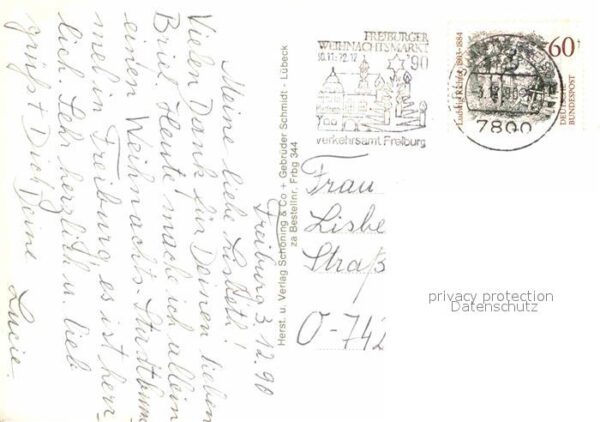 Freiburg 3.12.90
Meine liebe Lisbeth!
Vielen Dank für Deinen lieben
Brief. Heute mache ich allein
einen Weihnachts-Stadtbum-
mel in Freiburg es ist herr-
lich. Sehr herzlich u. lieb
grüßt Dich Deine Lucie.
Herst. u. Verlag Schöning & Co + Gebrüder Schmidt - Lübeck
za Bestellnr. Frbg 344
FREIBURGER
WEIHNACHTSMARKT
'90
Verkehrsamt Freiburg
Ludwig Richter 1803-1884
60
DEUTSCHE
BUNDESPOST
7800
Frau
Lisbe
Straß
O-742
privacy protection
Datenschutz